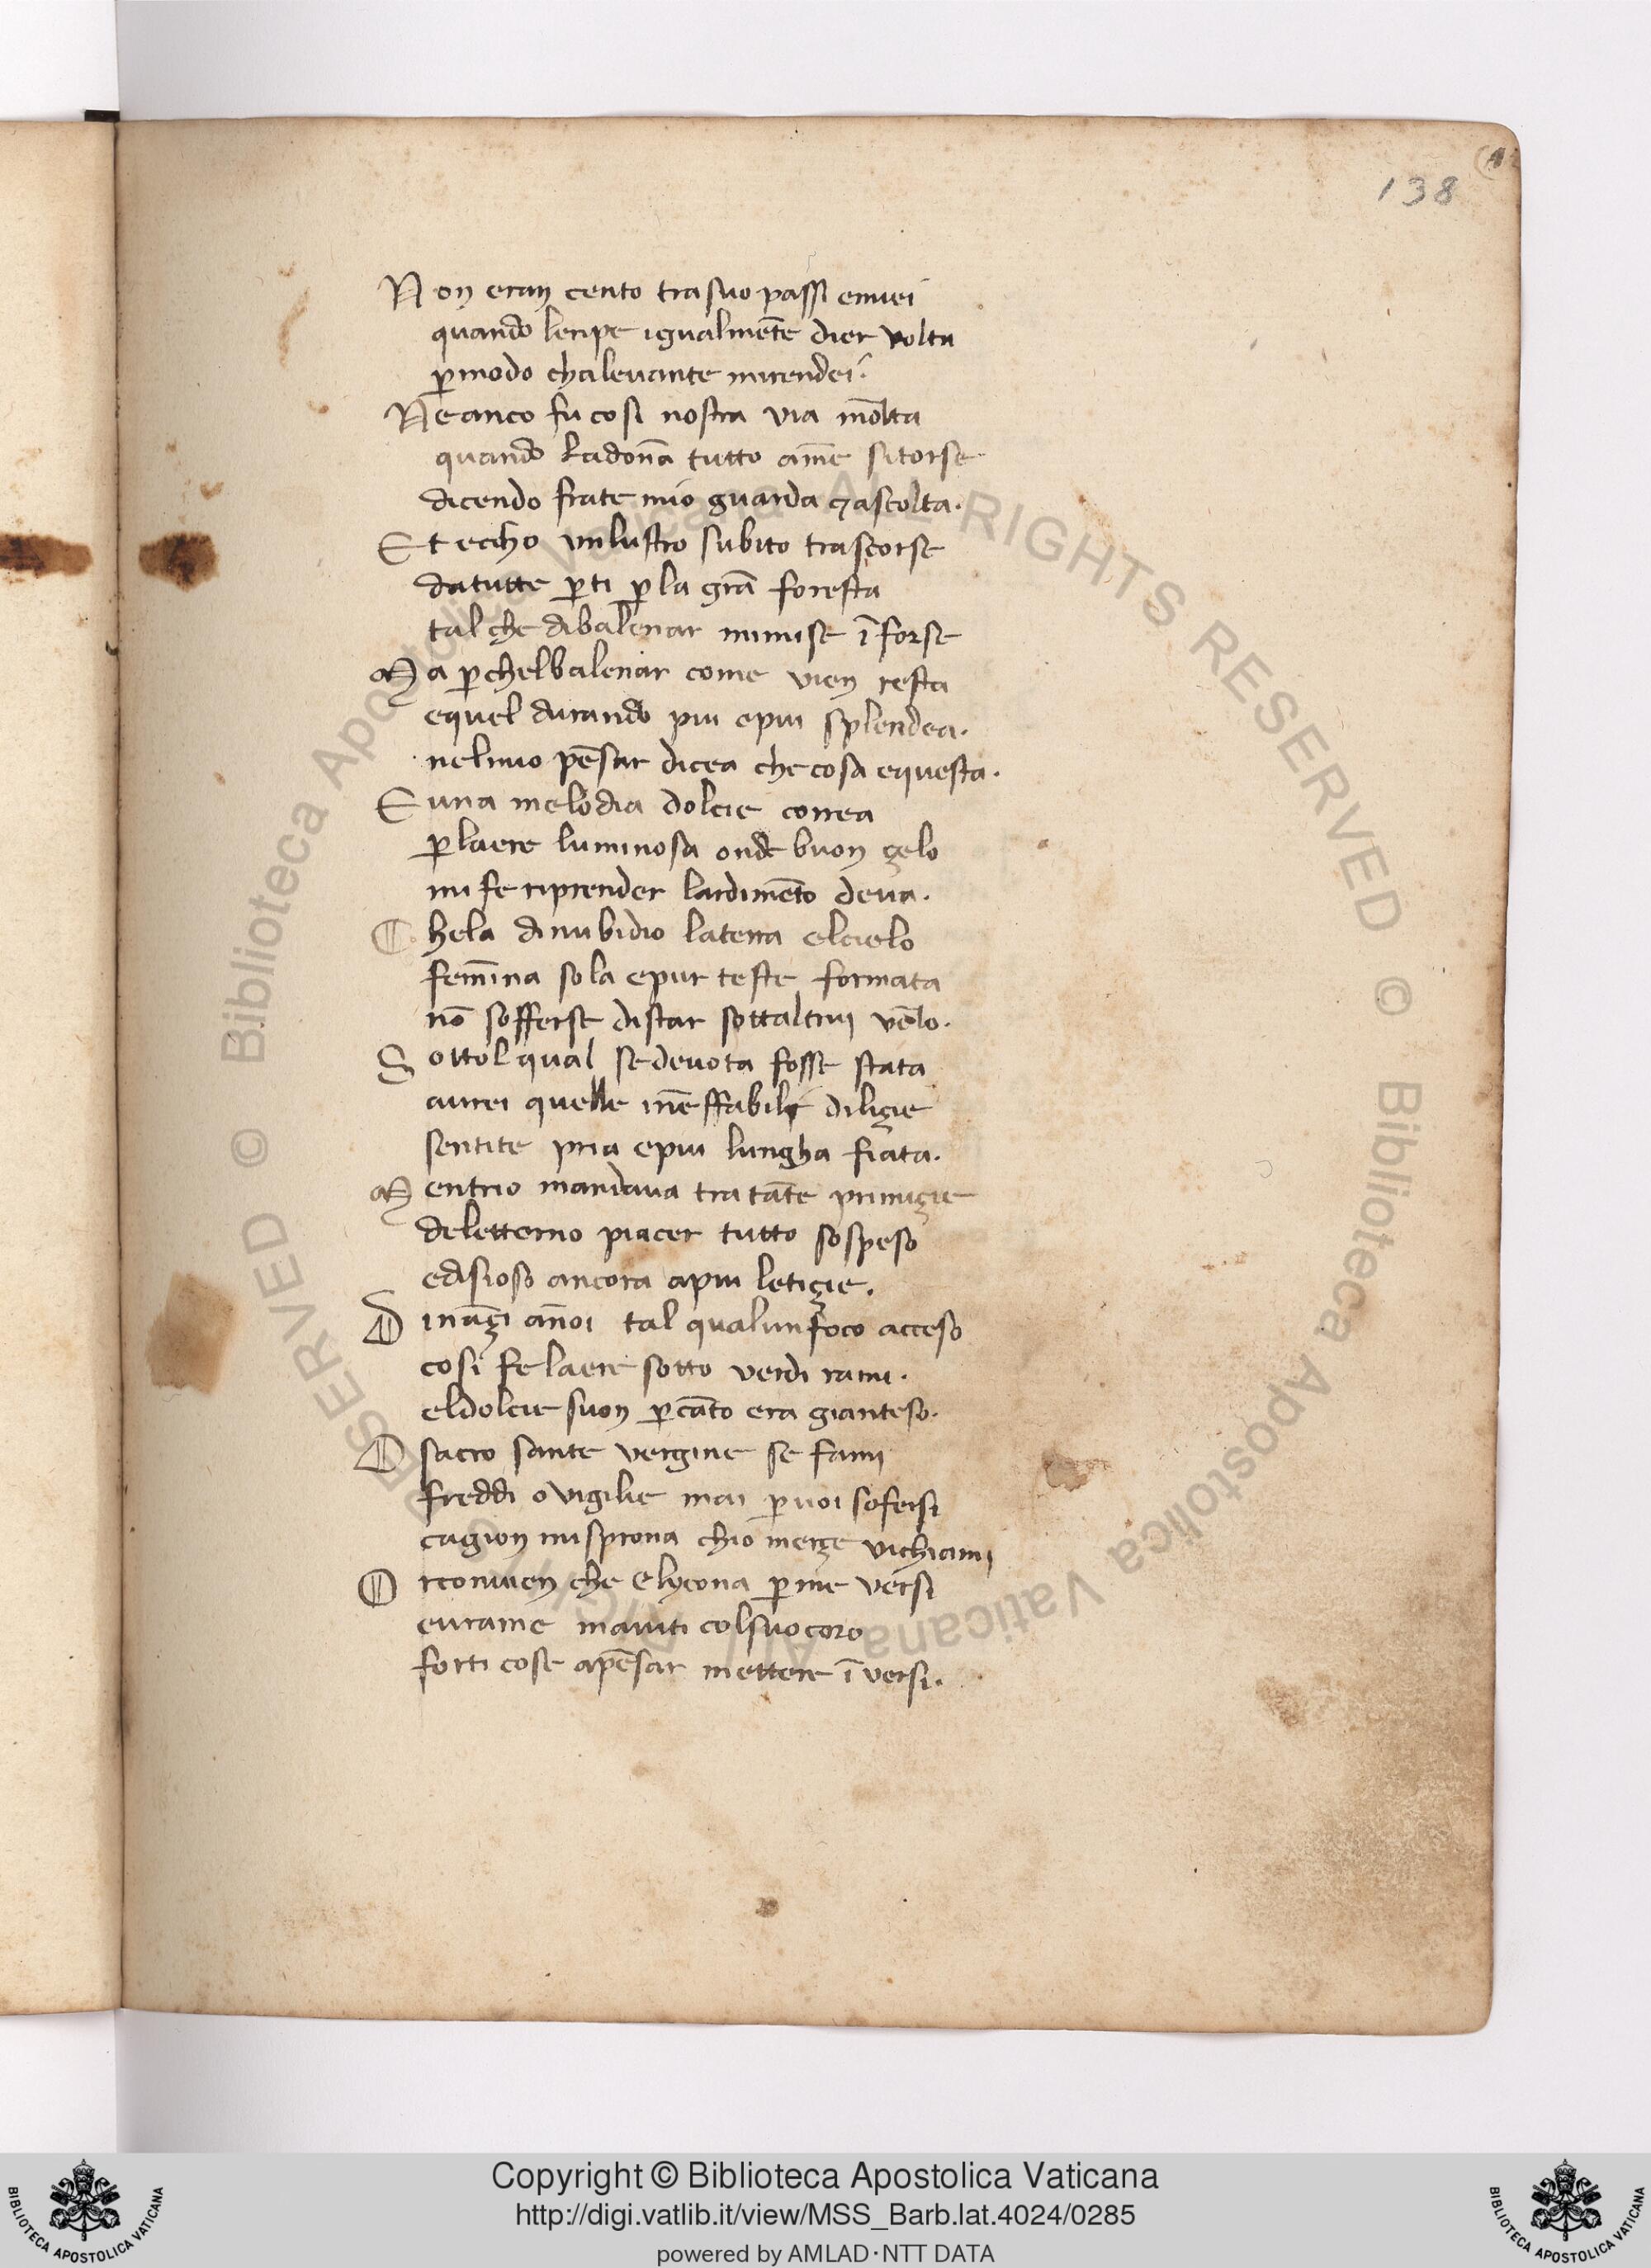 138
Non eran cento tra suo passi emiei
quando leripe igualmēte dier volta
ꝑmodo chalevante mirendei.
Ne anco fu cosi nostra via molta
quando Ladonā tutto amē sitorse
dicendo frate mio guarda ⁊ascolta.
Et echo unlustro subito trascorse
datutte ꝑti ꝑ la grā foresta
tal che dibalenar mimise ī forse
Ma ꝑchelbalenar come vien resta
equel durando piu epiu splendea.
nelmio pēsar dicea che cosa equesta.
E una melodia dolcie correa
ꝑlaere luminosa onde buon çelo
mi fe riprender lardimēto deva.
Chela dinubidio laterra elcielo
femīna sola epur teste formata
nō sofferse distar sottaltrui vēlo.
Sottol qual se devota fosse stata
aurei quelle inēffabili diliçie
sentite pria epiu lungha fiata.
Mentrio mandava tra tāte primiçie
delettorno piacer tutto sospeso
edisioso ancora apiu letiçie.
Dināçi anoi tal qualunfoco acceso
cosi fe laere sotto verdi rami.
eldolcie suon ꝑ cāto era gianteso.
O sacro sante vergine se fami
freddi o vigilie mai ꝑvoi sofersi
cagion misprona chio merçe vichiami
Orconvien che elycona ꝑ me versi
eurame maiuti colsuo coro
forti cose apēsar mettere ī versi.
Copyright © Biblioteca Apostolica Vaticana
http://digi.vatlib.it/view/MSS_Barb.lat.4024/0285
powered by AMLAD·NTT DATA
BIBLIOTECA APOSTOLICA VATICANA
BIBLIOTECA APOSTOLICA VATICANA
© Biblioteca Apostolica Vaticana ALL RIGHTS RESERVED © Biblioteca Apostolica Vaticana ALL RIGHTS RESERVED